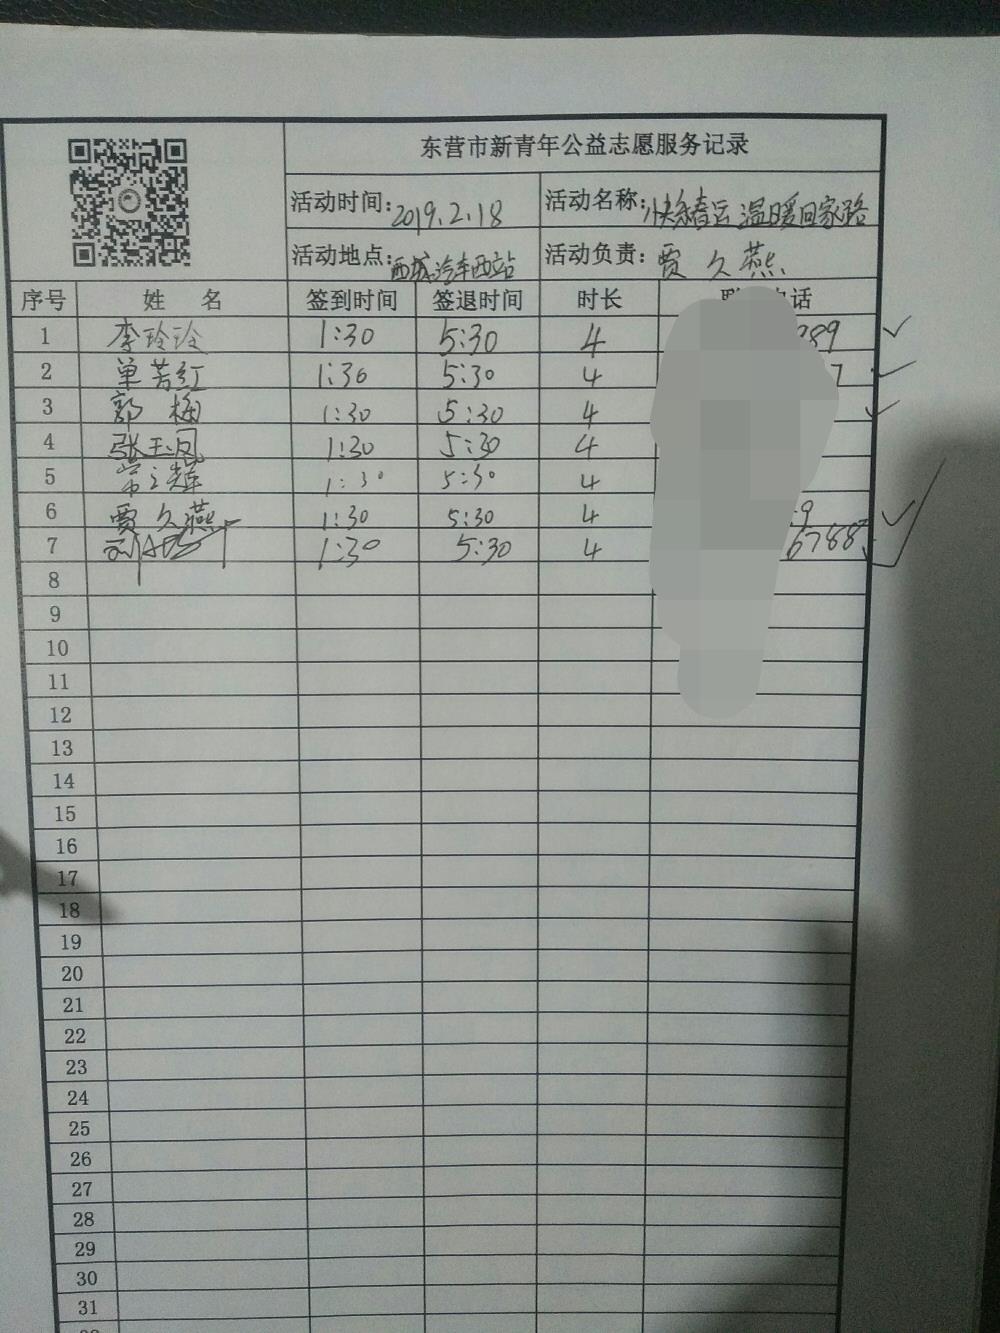 东营市新青年公益志愿服务记录
活动时间: 2019.2.18 活动名称: 春运 温暖回家路
活动地点: 西城汽车西站 活动负责: 贾久燕
序号 姓名 签到时间 签退时间 时长 电话
1 李玲玲 1:30 5:30 4 389
2 单芳红 1:30 5:30 4 7
3 郭梅 1:30 5:30 4
4 张玉凤 1:30 5:30 4
5 常立辉 1:30 5:30 4
6 贾久燕 1:30 5:30 4 9
7 1:30 5:30 4 6788
8
9
10
11
12
13
14
15
16
17
18
19
20
21
22
23
24
25
26
27
28
29
30
31